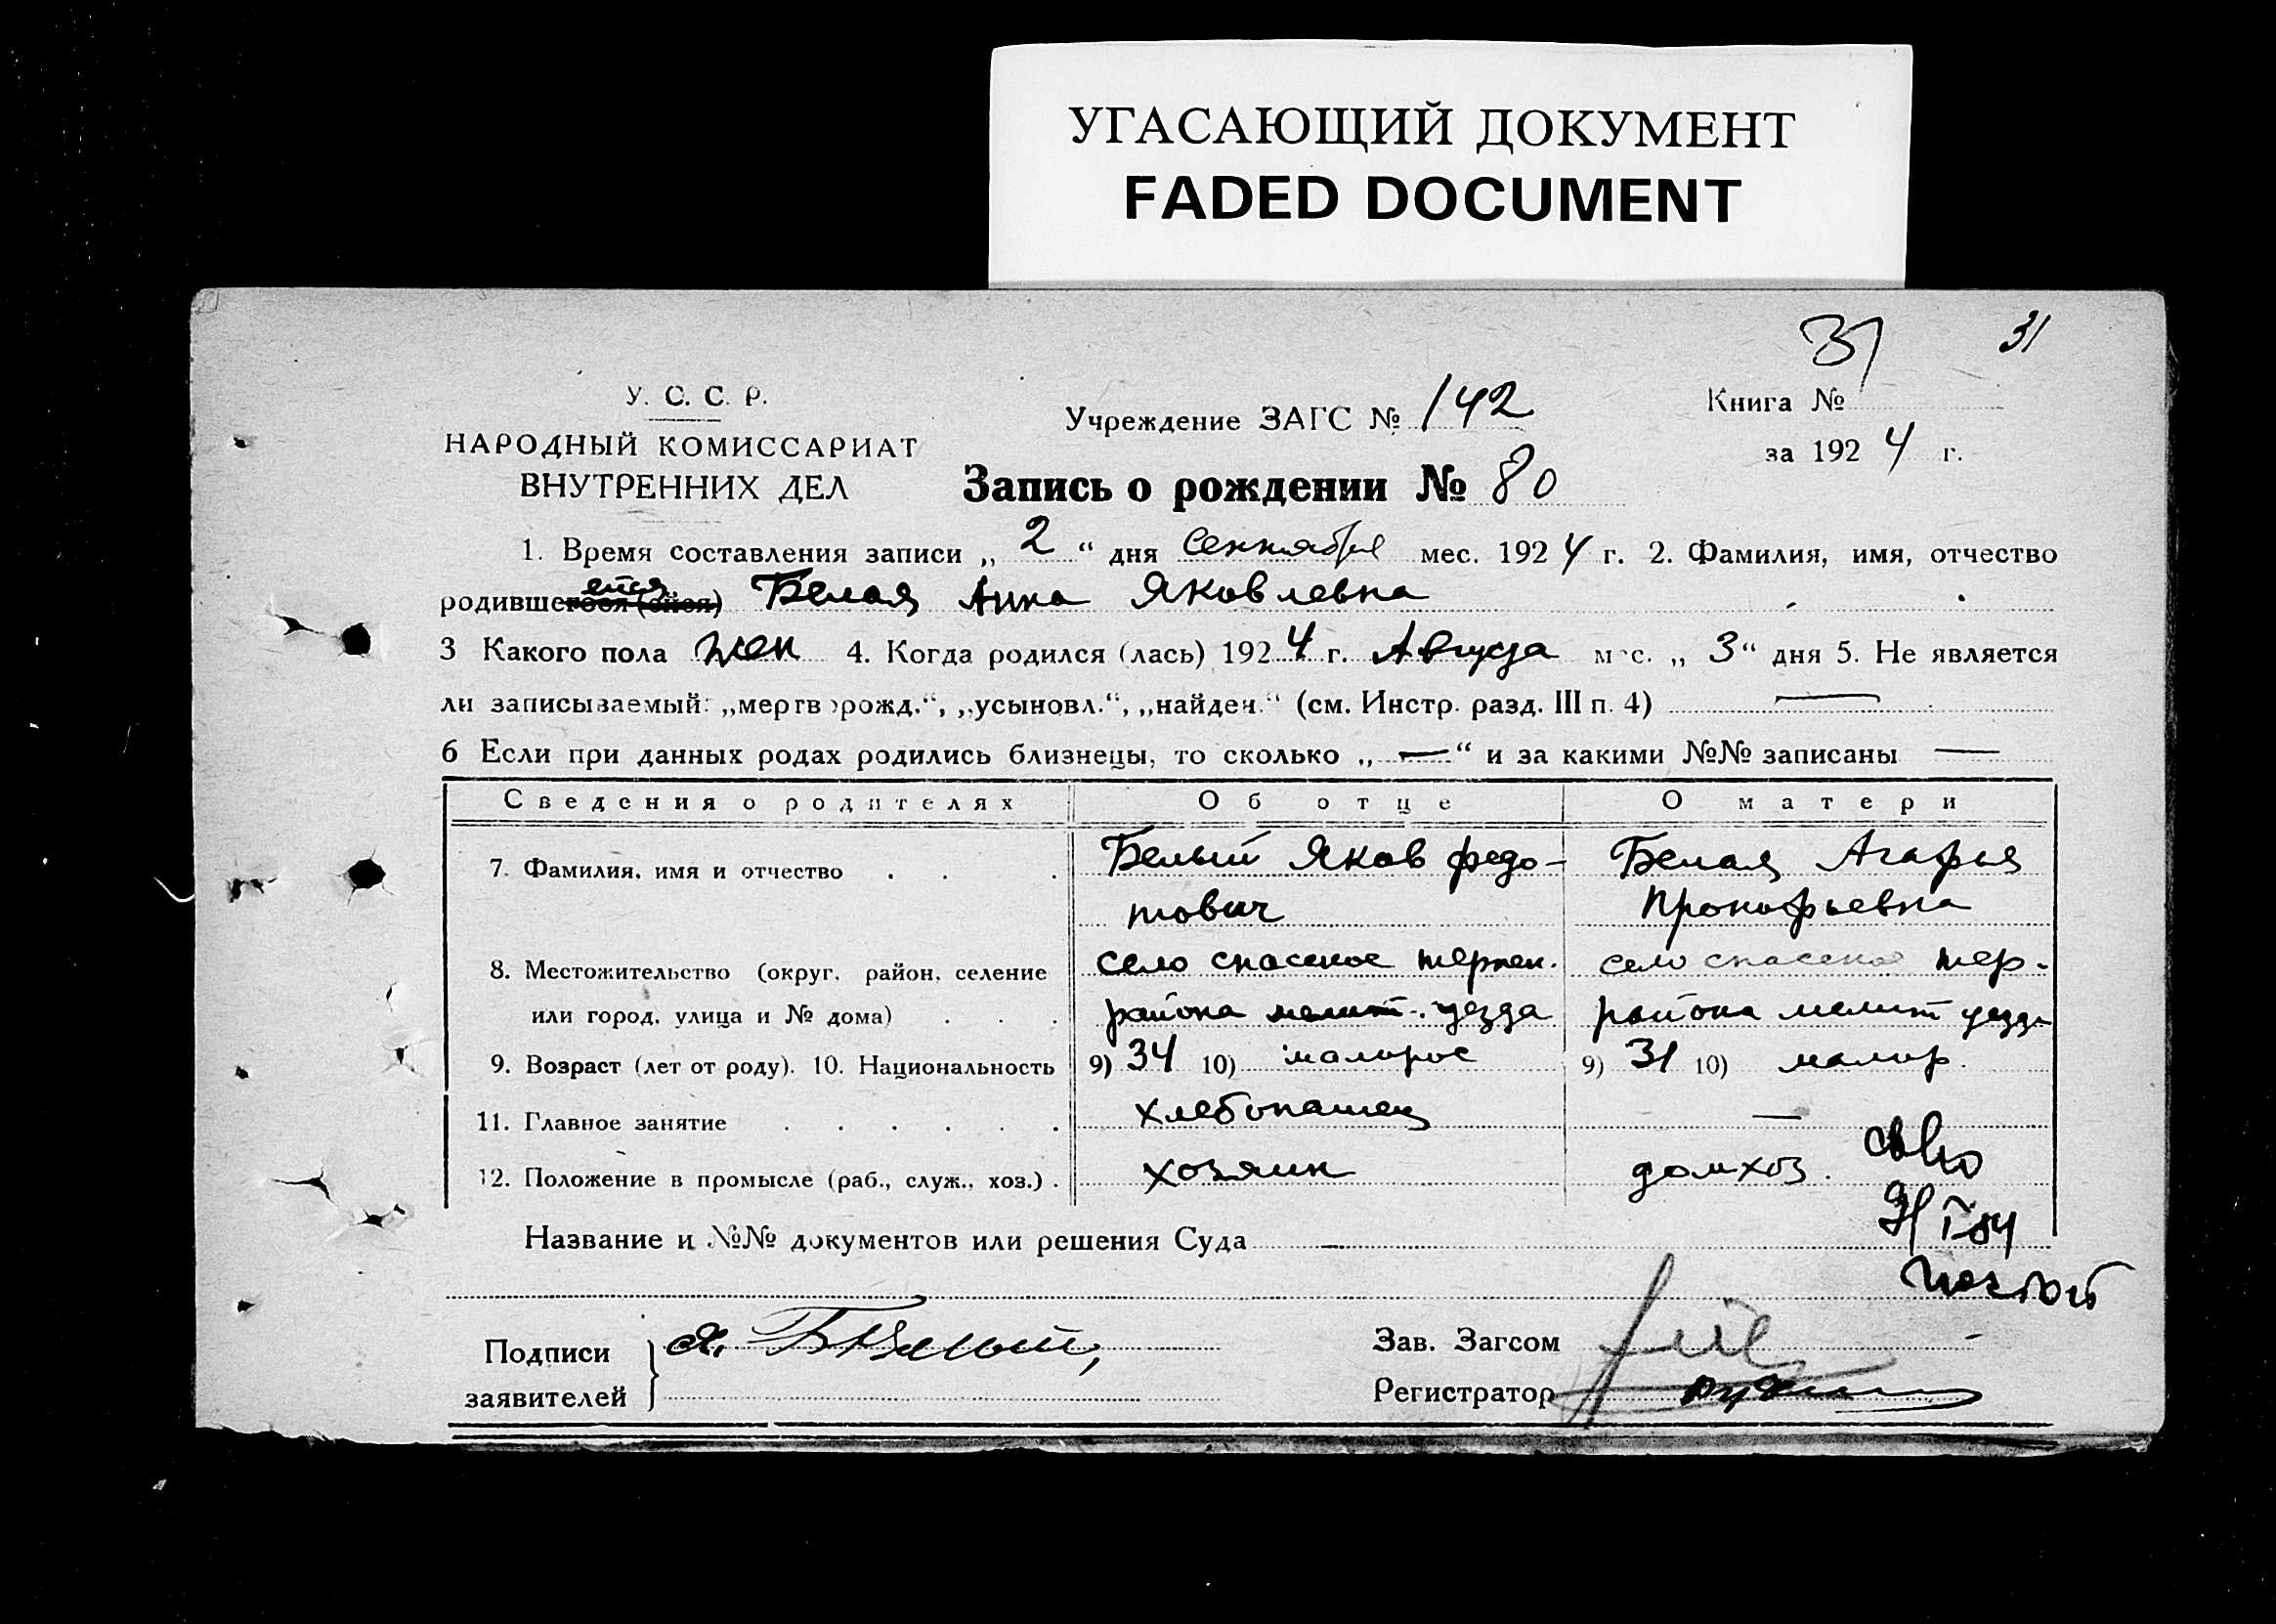 УГАСАЮЩИЙ ДОКУМЕНТ
FADED DOCUMENT
31 31
У. С. С. Р.
НАРОДНЫЙ КОМИССАРИАТ
ВНУТРЕННИХ ДЕЛ
Учреждение ЗАГС № 142
Книга №
за 1924 г.
Запись о рождении № 80
1. Время составления записи „ 2 “ дня сентября мес. 1924 г. 2. Фамилия, имя, отчество
родившегося (ейся) ейся Белая Анна Яковлевна
3 Какого пола жен 4. Когда родился (лась) 1924 г. Августа мес. „ 3 “ дня 5. Не является
ли записываемый: „мертворожд.“, „усыновл.“, „найден.“ (см. Инстр. разд. III п. 4) —
6 Если при данных родах родились близнецы, то сколько „ — “ и за какими №№ записаны —
Сведения о родителях Об отце О матери
7. Фамилия, имя и отчество . . . Белый Яков Федо- Белая Агафья
тович Прокофьевна
8. Местожительство (округ, район, селение село спаское терпен. село спаское тер.
или город, улица и № дома) . . . района мелит. уезда района мелит уезда
9. Возраст (лет от роду). 10. Национальность 9) 34 10) малорос 9) 31 10) малор.
11. Главное занятие . . . . . . хлебопашец —
12. Положение в промысле (раб., служ., хоз.) . хозяин домхоз.
Название и №№ документов или решения Суда —
Подписи
заявителей
Я. Белый,
Зав. Загсом
Регистратор